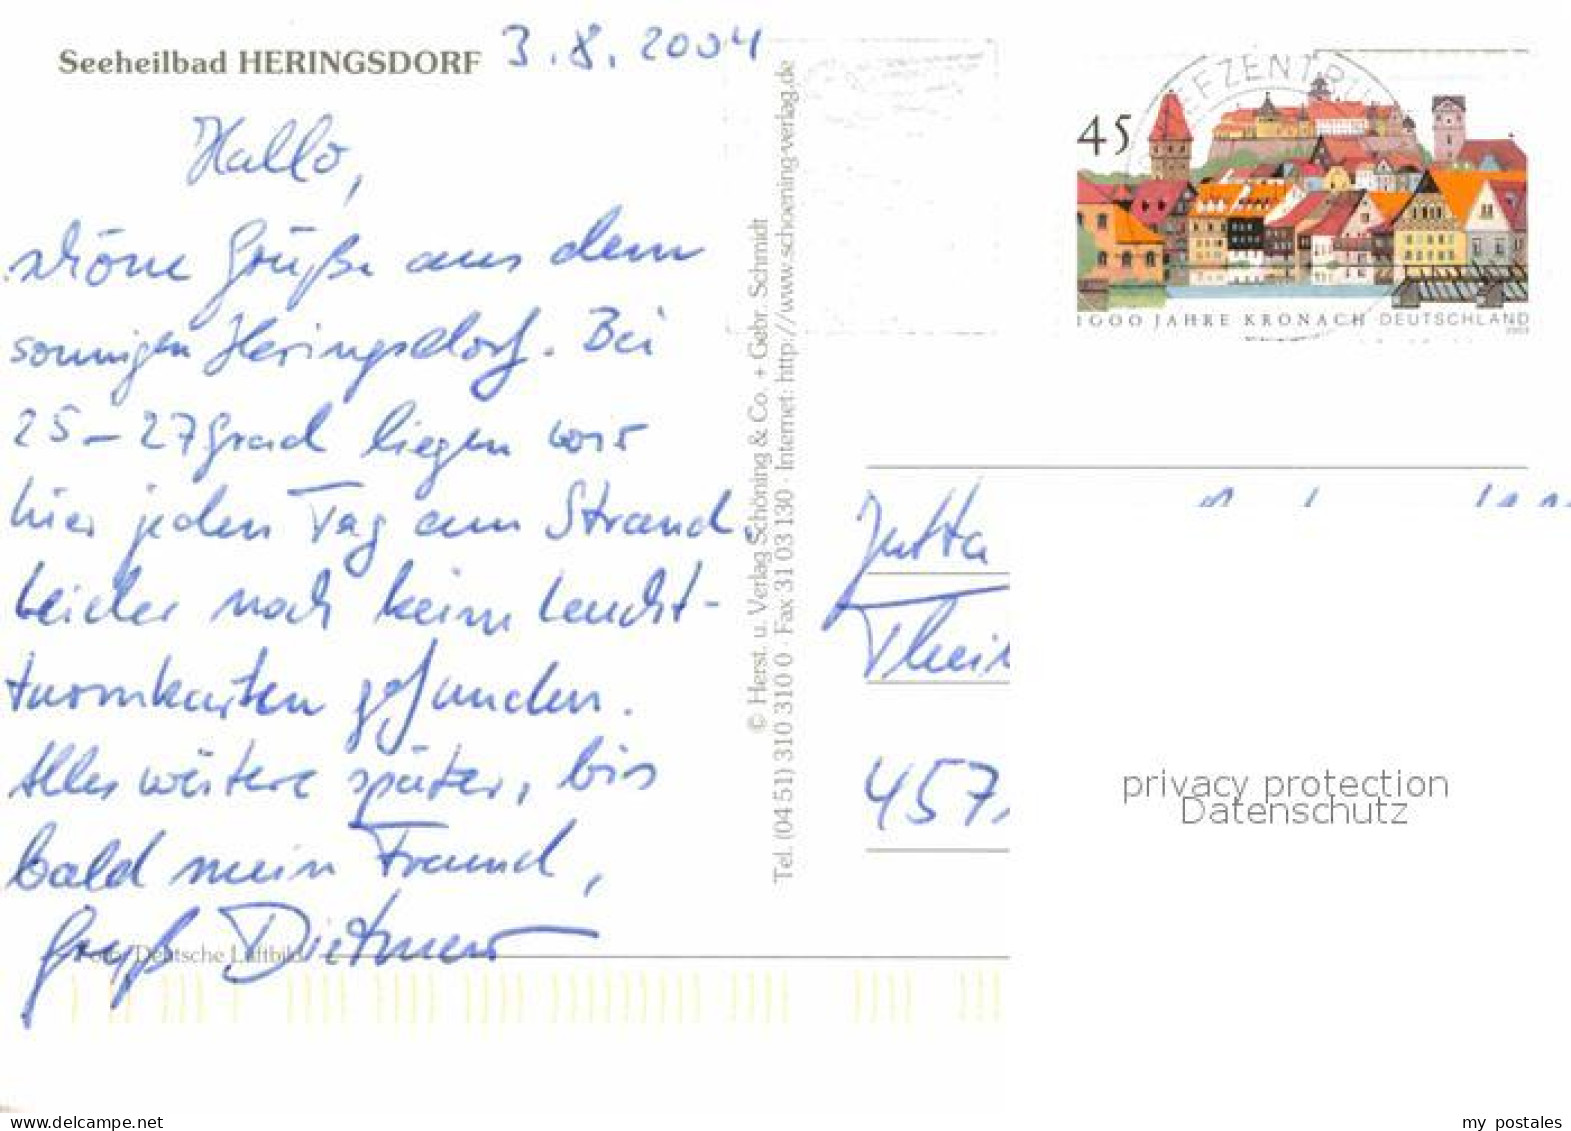 Seeheilbad HERINGSDORF 3.8.2004
Hallo,
schöne Grüße aus dem
sonnigen Heringsdorf. Bei
25-27 Grad liegen wir
hier jeden Tag am Strand.
Leider noch keine Leucht-
turmkarten gefunden.
Alles weitere später, bis
bald mein Freund,
Gruß Dietmar
Foto: Deutsche Luftbild
© Herst. u. Verlag Schöning & Co. + Gebr. Schmidt
Tel. (04 51) 310 310 0 · Fax 31 03 130 · Internet: http://www.schoening-verlag.de
EFZENTRU
45
1000 JAHRE KRONACH DEUTSCHLAND
Jutta
457
privacy protection
Datenschutz
my postales